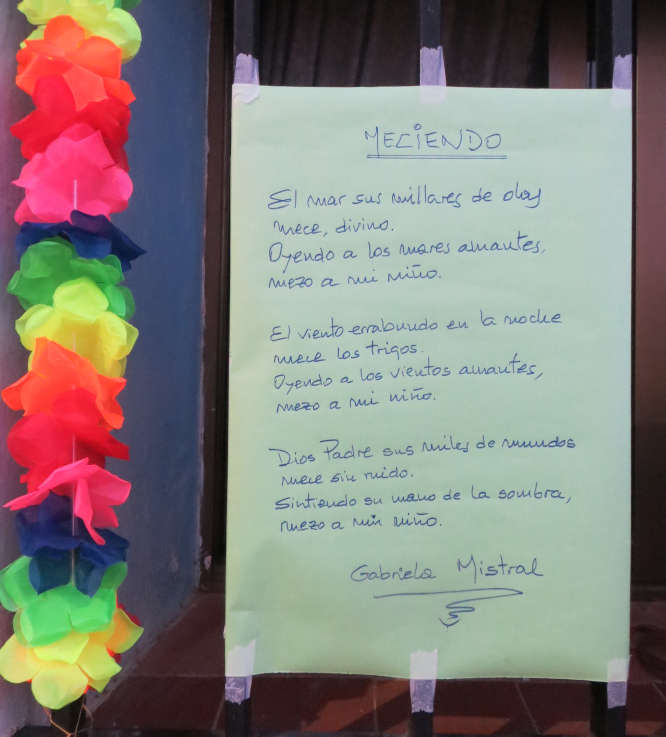 MECIENDO
El mar sus millares de olas
mece, divino.
Oyendo a los mares amantes,
mezo a mi niño.
El viento errabundo en la noche
mece los trigos.
Oyendo a los vientos amantes,
mezo a mi niño.
Dios Padre sus miles de mundos
mece sin ruido.
Sintiendo su mano de la sombra,
mezo a min niño.
Gabriela Mistral